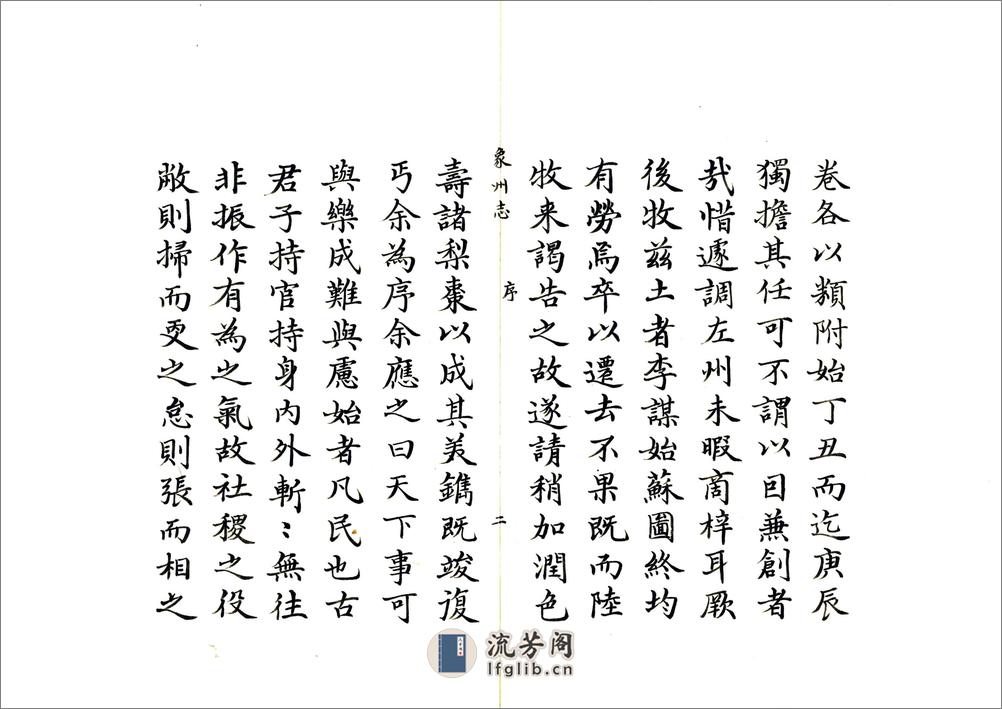 卷各以類附始丁丑而迄庚辰
獨擔其任可不謂以因兼創者
㢤惜遽調左州未暇商梓耳厥
後牧兹土者李謀始蘇圖終均
有勞焉卒以遷去不果既而陸
牧来謁告之故遂請稍加潤色
象州志 序 二
壽諸梨棗以成其美鐫既竣復
丐余為序余應之曰天下事可
與樂成難與慮始者凡民也古
君子持官持身内外斬〻無往
非振作有為之氣故社稷之役
敝則掃而更之怠則張而相之
流芳阁
lfglib.cn